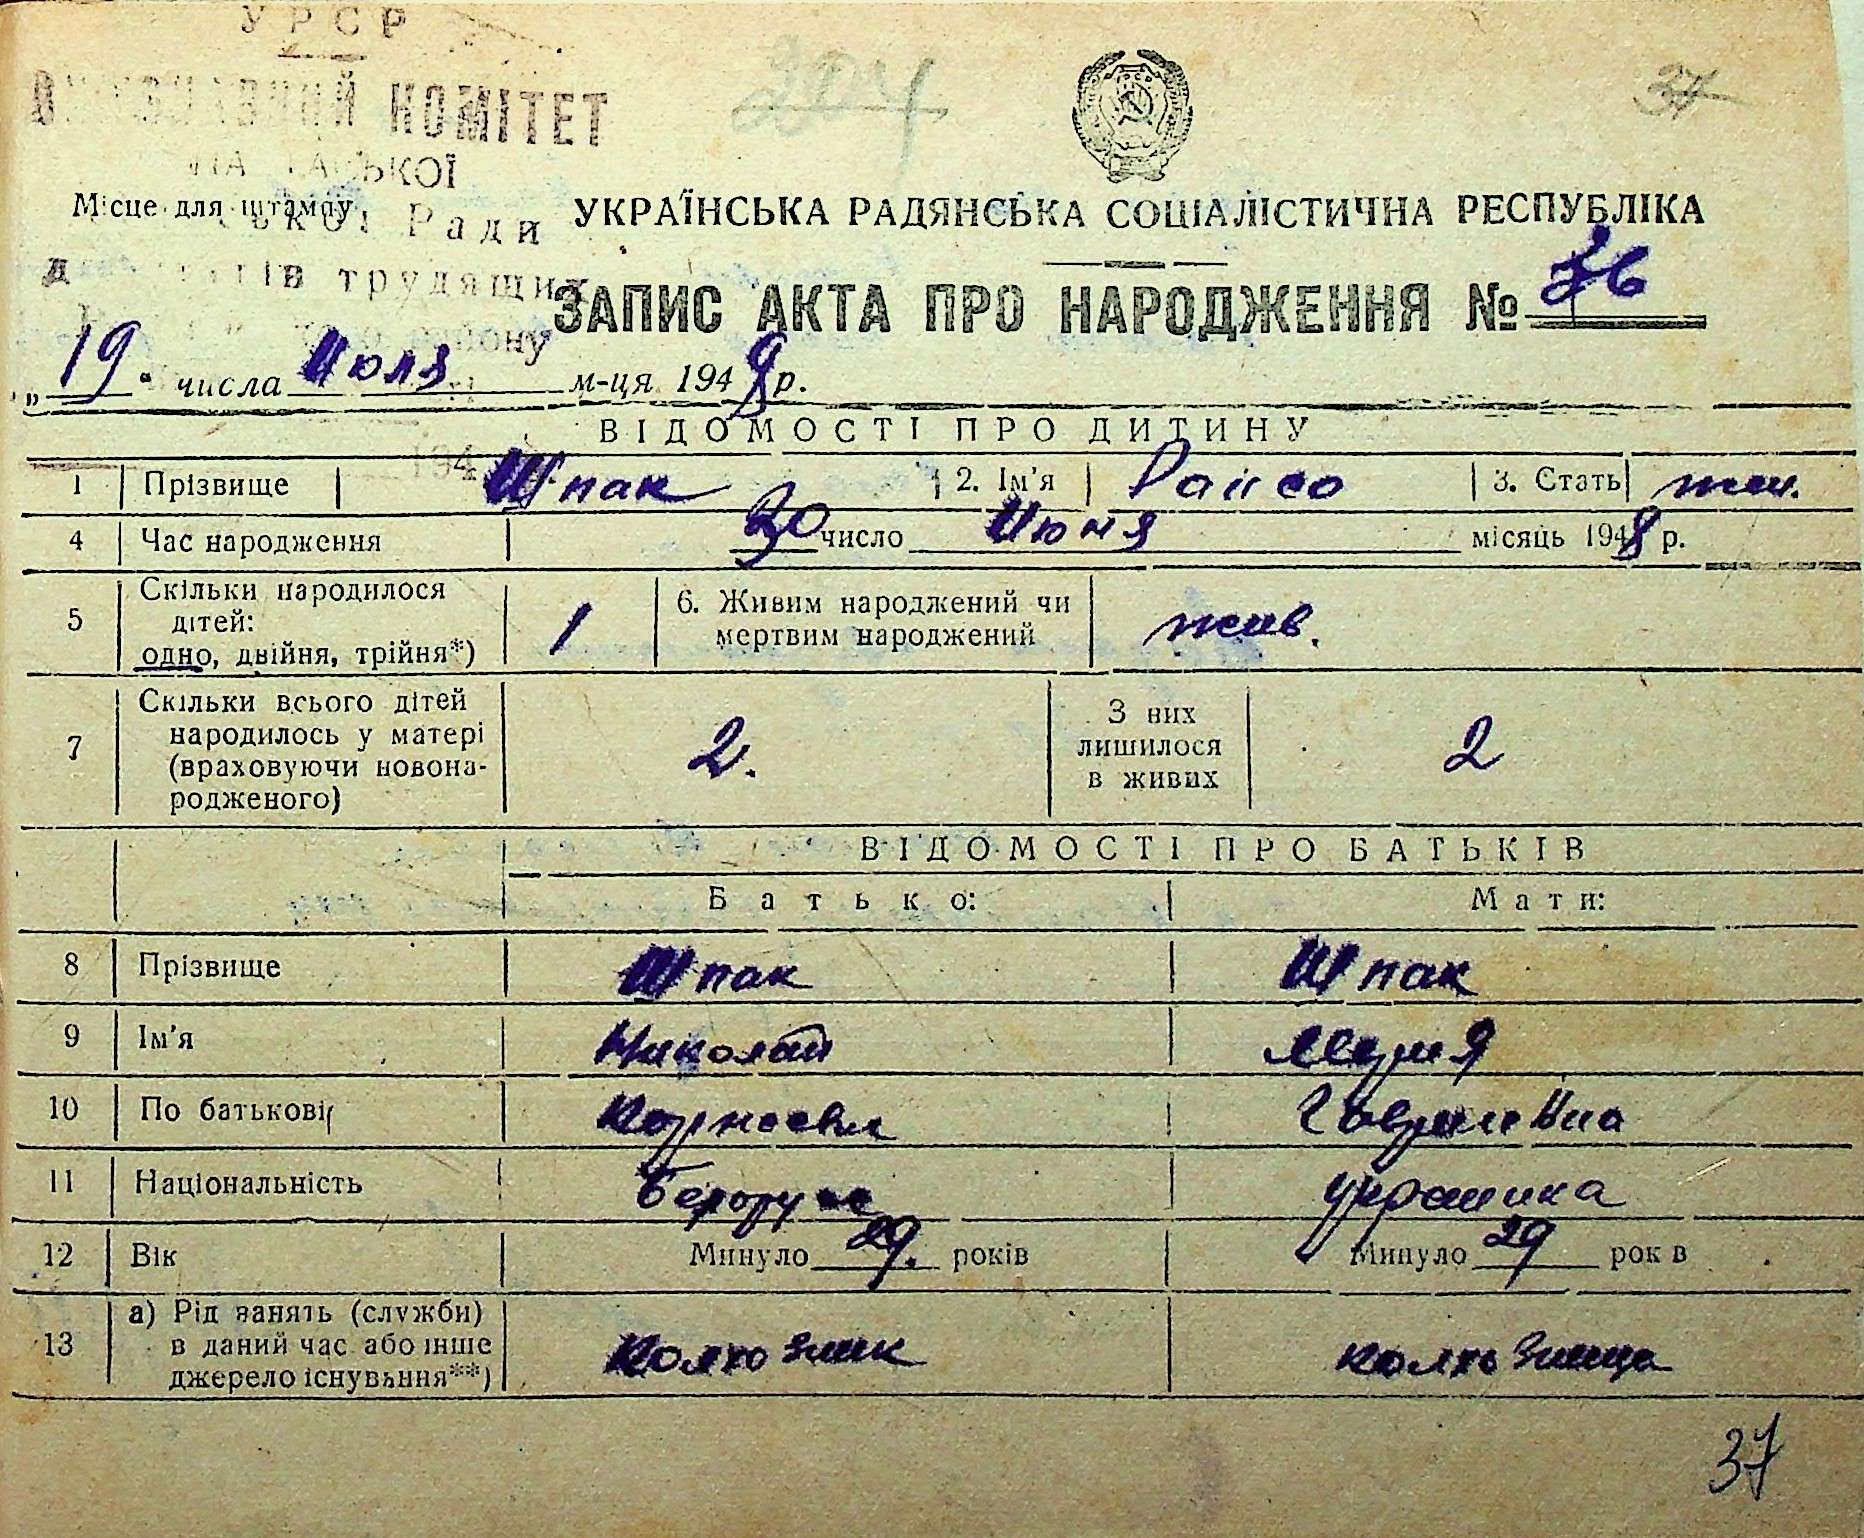 УРСР
КОМІТЕТ
Місце для штампу
Ради
трудящих
УКРАЇНСЬКА РАДЯНСЬКА СОЦІАЛІСТИЧНА РЕСПУБЛІКА
37
ЗАПИС АКТА ПРО НАРОДЖЕННЯ № 36
„19“ числа Июля м-ця 1948 р.
ВІДОМОСТІ ПРО ДИТИНУ
1 Прізвище Шпак 2. Ім'я Раисо 3. Стать жен.
4 Час народження 30 число Июня місяць 1948 р.
5 Скільки народилося дітей: одно, двійня, трійня*) 1 6. Живим народжений чи мертвим народжений жив.
7 Скільки всього дітей народилось у матері (враховуючи новонародженого) 2. З них лишилося в живих 2
ВІДОМОСТІ ПРО БАТЬКІВ
Батько: Мати:
8 Прізвище Шпак Шпак
9 Ім'я Николай Мария
10 По батькові Корнеевич
11 Національність украинка
12 Вік Минуло 29. років Минуло 29 рок в
13 а) Рід занять (служби) в даний час або інше джерело існування**) Колхозник колхозница
37